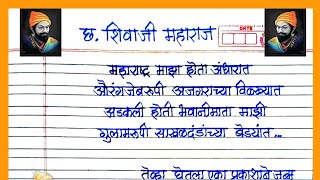 छ. शिवाजी महाराज
DATE
महाराष्ट्र माझा होता अंधारात
औरंगजेबरुपी अजगराच्या विळख्यात
अडकली होती भवानीमाता माझी
गुलामरुपी साखळदंडांच्या बेड्यांत ...
तेव्हा घेतला एका प्रकाशाने जन्म